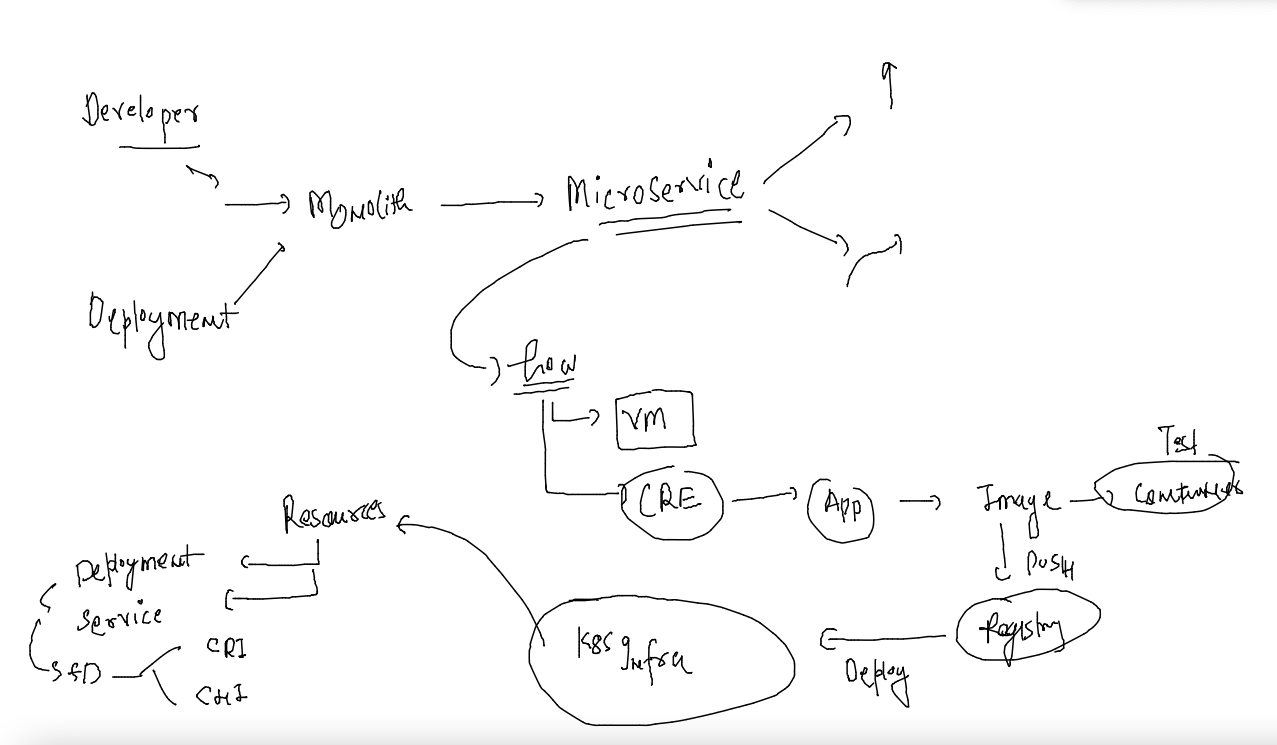 Developer
Monolith
Microservice
Deployment
how
VM
CRE
App
Image
Test
Containers
PUSH
Registry
Deploy
K8S Infra
Resources
Deployment
Service
CRI